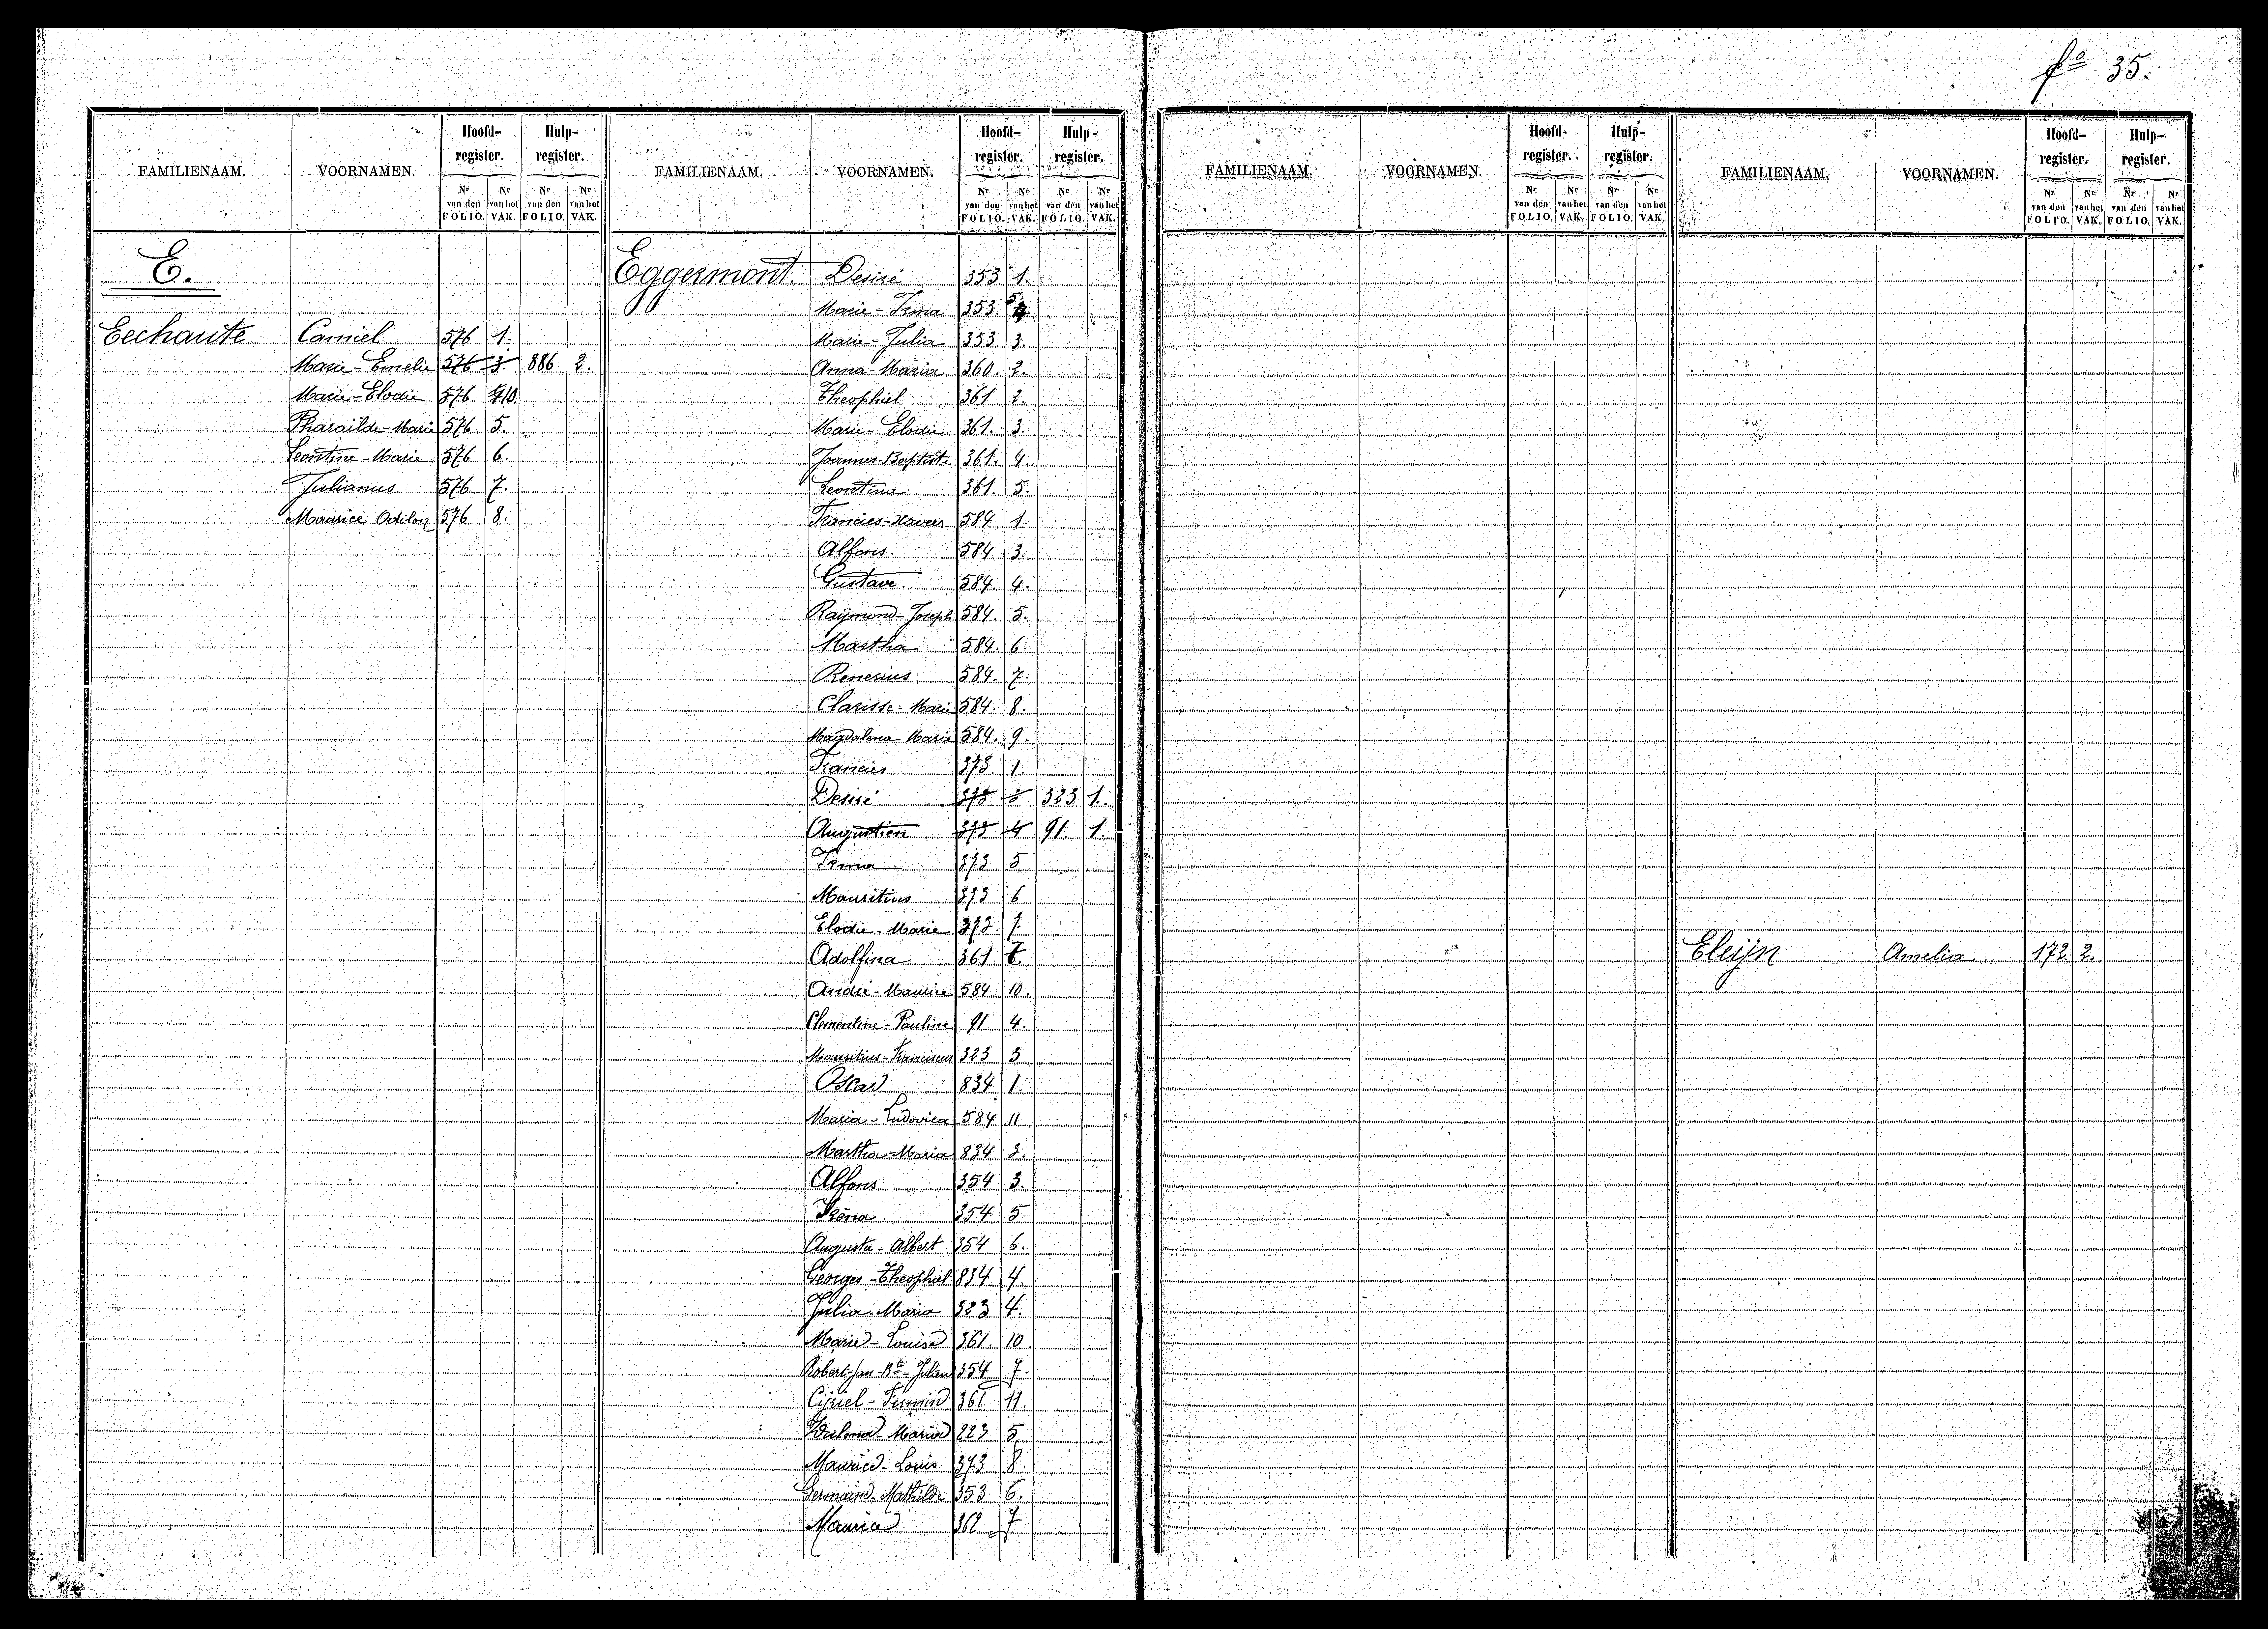 fo 35.
FAMILIENAAM. VOORNAMEN. Hoofd-register. Hulp-register.
Nr van den FOLIO. Nr van het VAK. Nr van den FOLIO. Nr van het VAK.
E.
Eechaute Camiel 576 1.
Marie-Emelie 576 3. 886 2.
Marie-Elodie 576 10.
Pharailde-Marie 576 5.
Leontine-Marie 576 6.
Julianus 576 7.
Maurice Odilon 576 8.
FAMILIENAAM. VOORNAMEN. Hoofd-register. Hulp-register.
Nr van den FOLIO. Nr van het VAK. Nr van den FOLIO. Nr van het VAK.
Eggermont. Desiré 353 1.
Marie-Irma 353. 5.
Marie-Julia 353. 3.
Anna-Maria 360. 2.
Theophiel 361 2.
Marie-Elodie 361. 3.
Joannes-Baptiste 361. 4.
Leontina 361. 5.
Francies-Xaveer 584 1.
Alfons. 584 3.
Gustave. 584. 4.
Raÿmond-Joseph 584. 5.
Martha 584. 6.
Renerius 584. 7.
Clarisse-Marie 584. 8.
Magdalena-Marie 584. 9.
Francies 373. 1.
Desiré 373 3 323 1.
Augustien 373 4 91. 1.
Irma 373 5
Mauritius 373 6
Elodie-Marie 373. 7.
Adolfina 361 7
André-Maurice 584 10.
Clementine-Pauline 91 4.
Mauritius-Franciscus 323 3
Oscar 834 1.
Maria-Ludovica 584 11
Martha-Maria 834 3.
Alfons 354 3.
Iréna 354 5
Augusta-Albert 354 6.
Georges-Theophiel 834 4.
Julia-Maria 323 4.
Marie-Louise 361. 10
Robert-Jan-Bte-Julien 354 7.
Cijriel-Firmin 361 11.
Marie 223 5
Maurice-Louis 373 8.
Germaine-Mathilde 353 6.
Maurice 362 7
FAMILIENAAM. VOORNAMEN. Hoofd-register. Hulp-register.
Nr van den FOLIO. Nr van het VAK. Nr van den FOLIO. Nr van het VAK.
FAMILIENAAM. VOORNAMEN. Hoofd-register. Hulp-register.
Nr van den FOLIO. Nr van het VAK. Nr van den FOLIO. Nr van het VAK.
Eleijn Amelia 172. 2.